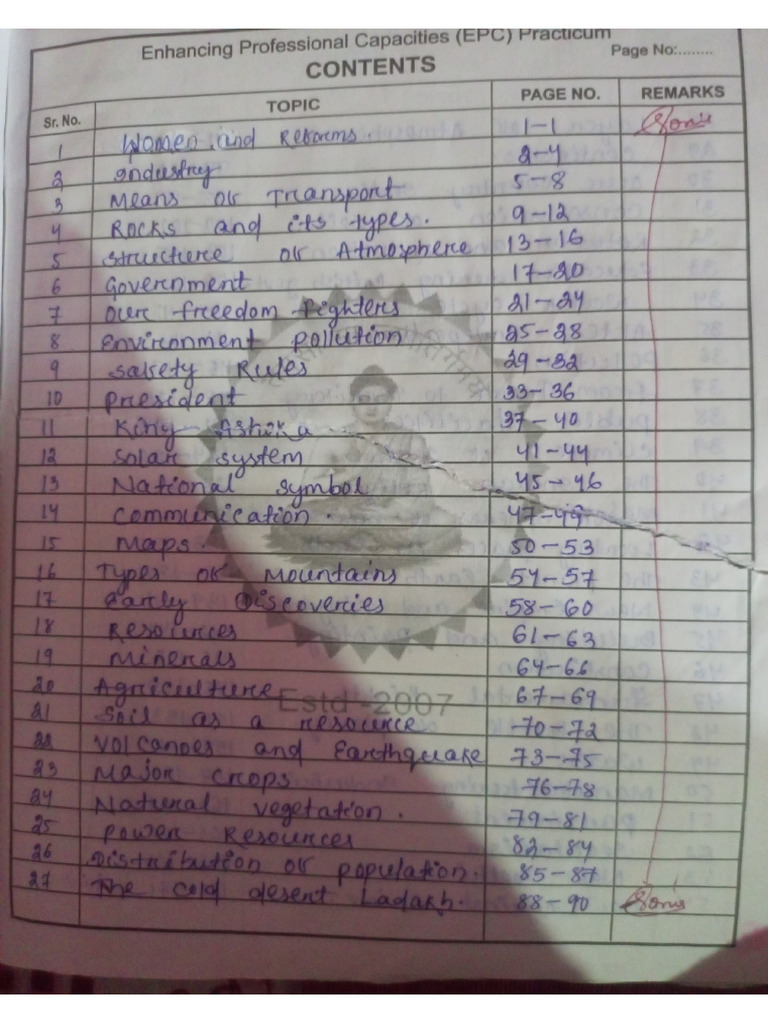 Enhancing Professional Capacities (EPC) Practicum
Page No:........
CONTENTS
Sr. No. TOPIC PAGE NO. REMARKS
1 Women and Reforms. 1-1
2 Industry 2-4
3 Means of Transport 5-8
4 Rocks and its types. 9-12
5 Structure of Atmosphere 13-16
6 Government 17-20
7 Our freedom fighters 21-24
8 Environment pollution 25-28
9 Safety Rules 29-32
10 President 33-36
11 King Ashoka 37-40
12 Solar system 41-44
13 National symbol 45-46
14 Communication. 47-49
15 Maps. 50-53
16 Types of Mountains 54-57
17 Early Discoveries 58-60
18 Resources 61-63
19 Minerals 64-66
20 Agriculture 67-69
21 Soil as a resource 70-72
22 Volcanoes and Earthquake 73-75
23 Major crops 76-78
24 Natural vegetation. 79-81
25 Power Resources 82-84
26 Distribution of population. 85-87
27 The cold desert Ladakh. 88-90
Estd -2007